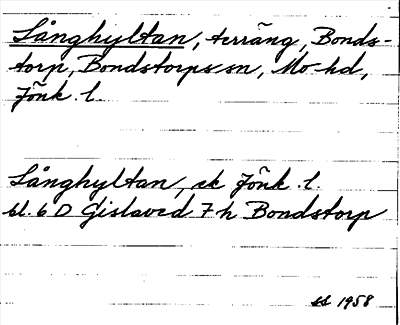 Långhyltan, terräng, Bonds-
torp, Bondstorps sn, Mo hd,
Jönk. l.
Långhyltan, ek Jönk. l.
bl. 6 D Gislaved 7 h Bondstorp
ss 1958